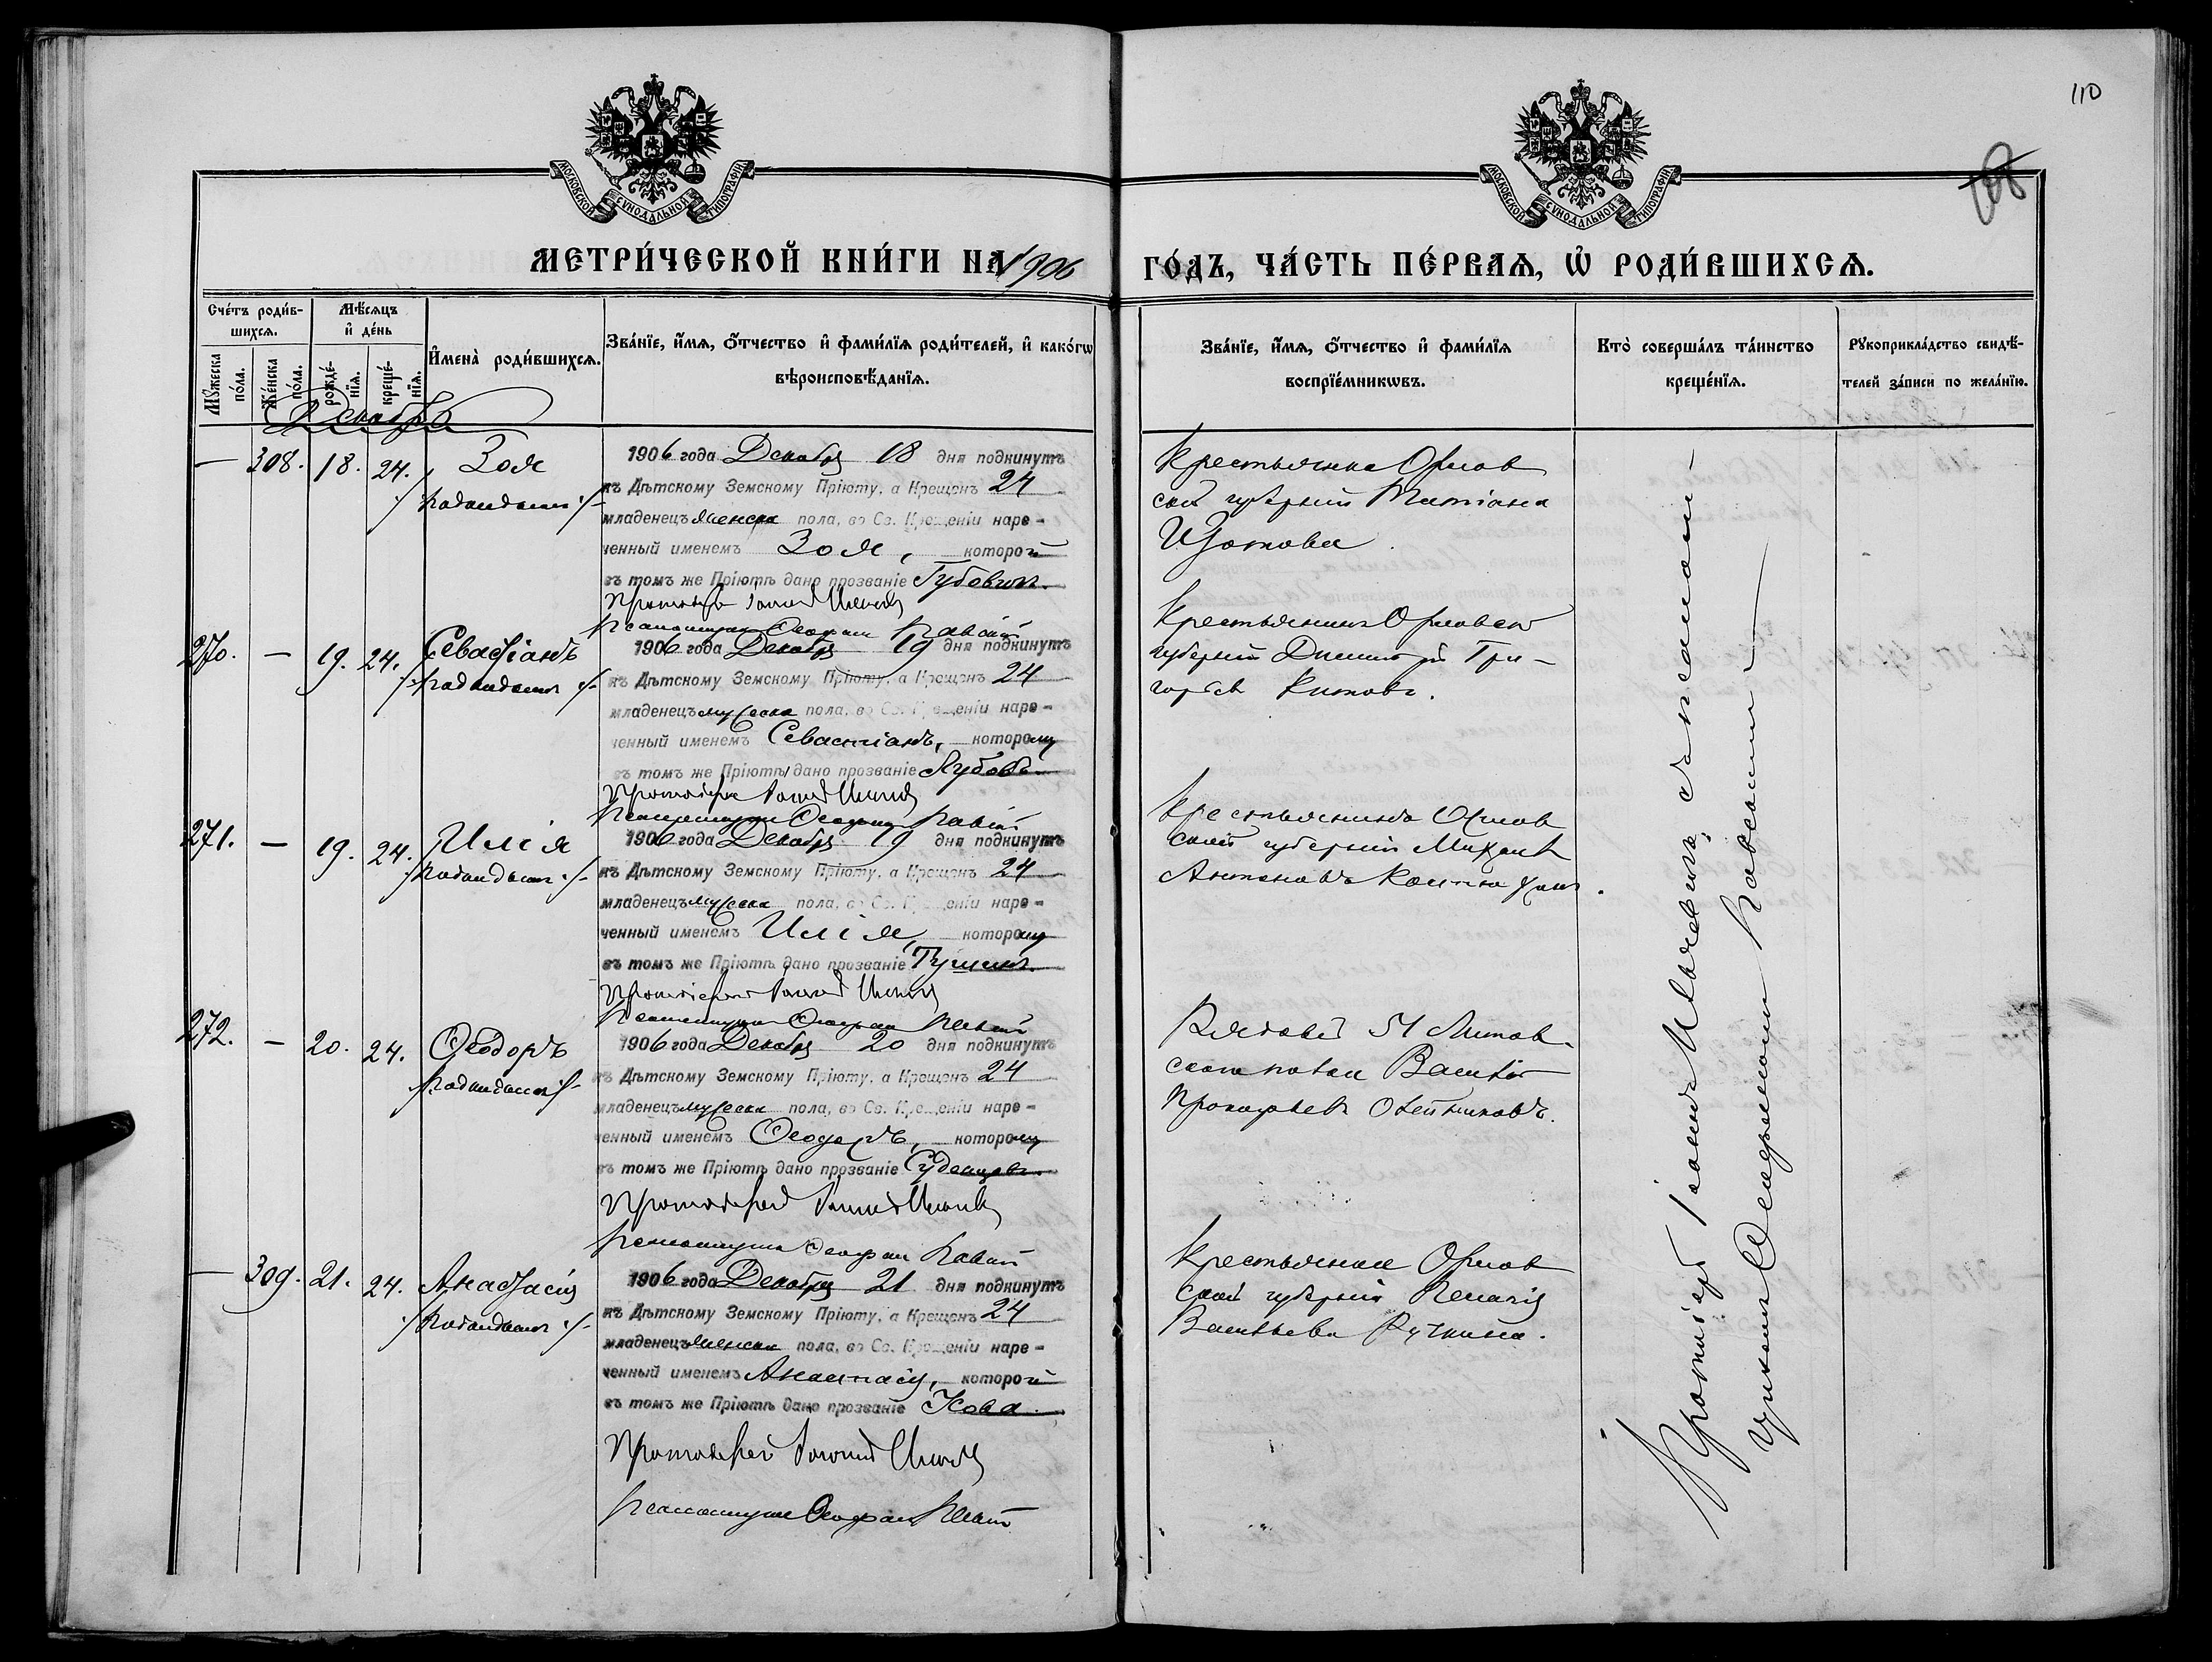 110
108
МОСКОВСКОЙ СѴНОДАЛЬНОЙ ТИПОГРАФІИ
МОСКОВСКОЙ СѴНОДАЛЬНОЙ ТИПОГРАФІИ
МЕТРИ́ЧЕСКОЙ КНИ́ГИ НА 1906
ГО́ДЪ, ЧА́СТЬ ПЕ́РВАѦ, Ѡ҆ РОДИ́ВШИХСѦ.
Сче́тъ роди́в-
шихсѧ.
Мꙋ́жеска по́ла.
Же́нска по́ла.
Мѣ́сѧцъ
и҆ де́нь
рожде́-нїѧ.
креще́-нїѧ.
И҆мена̀ роди́вшихсѧ.
Зва́нїе, и҆́мѧ, ѻ҆́тчество и҆ фами́лїѧ роди́телей, и҆ како́гѡ
вѣроисповѣ́данїѧ.
Зва́нїе, и҆́мѧ, ѻ҆́тчество и҆ фами́лїѧ
воспрїе́мникѡвъ.
Кто̀ соверша́лъ та́инство
креще́нїѧ.
Рꙋкоприкла́дство свидѣ́-
телей за́писи по жела́нїю.
Декабрь
— 308. 18. 24. Зоя
1906 года Декабря 18 дня подкинутъ
къ Дѣтскому Земскому Пріюту, а Крещенъ 24
младенецъ женска пола, во Св. Крещеніи наре-
ченный именемъ Зоя, которой
въ томъ же Пріютѣ дано прозваніе
Протоіерей Іоаннъ
Псаломщикъ Ѳеофанъ
Крестьянка Орлов
ской губерніи Татіана
Изотова.
270. — 19. 24. Севастіанъ
1906 года Декабря 19 дня подкинутъ
къ Дѣтскому Земскому Пріюту, а Крещенъ 24
младенецъ мужеска пола, во Св. Крещеніи наре-
ченный именемъ Севастіанъ, которому
въ томъ же Пріютѣ дано прозваніе
Протоіерей Іоаннъ
Псаломщикъ Ѳеофанъ
Крестьянинъ Орловской
губерніи Димитрій Гри-
горьев Китовъ.
271. — 19. 24. Илія
1906 года Декабря 19 дня подкинутъ
къ Дѣтскому Земскому Пріюту, а Крещенъ 24
младенецъ мужеска пола, во Св. Крещеніи наре-
ченный именемъ Илія, которому
въ томъ же Пріютѣ дано прозваніе
Протоіерей Іоаннъ
Псаломщикъ Ѳеофанъ
Крестьянинъ Орлов
ской губерніи Михаил
Антоновъ
272. — 20. 24. Ѳеодоръ
1906 года Декабря 20 дня подкинутъ
къ Дѣтскому Земскому Пріюту, а Крещенъ 24
младенецъ мужеска пола, во Св. Крещеніи наре-
ченный именемъ Ѳеодоръ, которому
въ томъ же Пріютѣ дано прозваніе
Протоіерей Іоаннъ
Псаломщикъ Ѳеофанъ
Рядовой 51 Литов
скаго полка Василій
Прокофьевъ Олейниковъ.
— 309. 21. 24. Анастасія
1906 года Декабря 21 дня подкинутъ
къ Дѣтскому Земскому Пріюту, а Крещенъ 24
младенецъ женска пола, во Св. Крещеніи наре-
ченный именемъ Анастасія, которой
въ томъ же Пріютѣ дано прозваніе Усова.
Протоіерей Іоаннъ
Псаломщикъ Ѳеофанъ
Крестьянка Орлов
ской губерніи Пелагія
Васильева Ручкина.
Протоіерей Іоаннъ съ псаломщ-
щикомъ Ѳеофаномъ